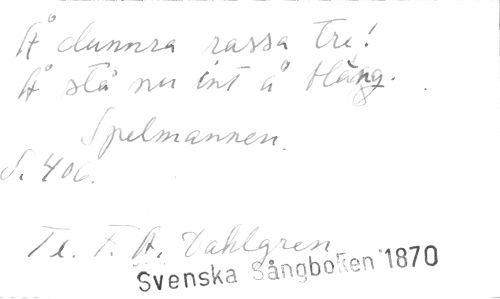 Å dunnra rassa tre!
Å stå nu int å häng.
Spelmannen.
S. 406.
Te. F. A. Dahlgren
Svenska Sångboken 1870